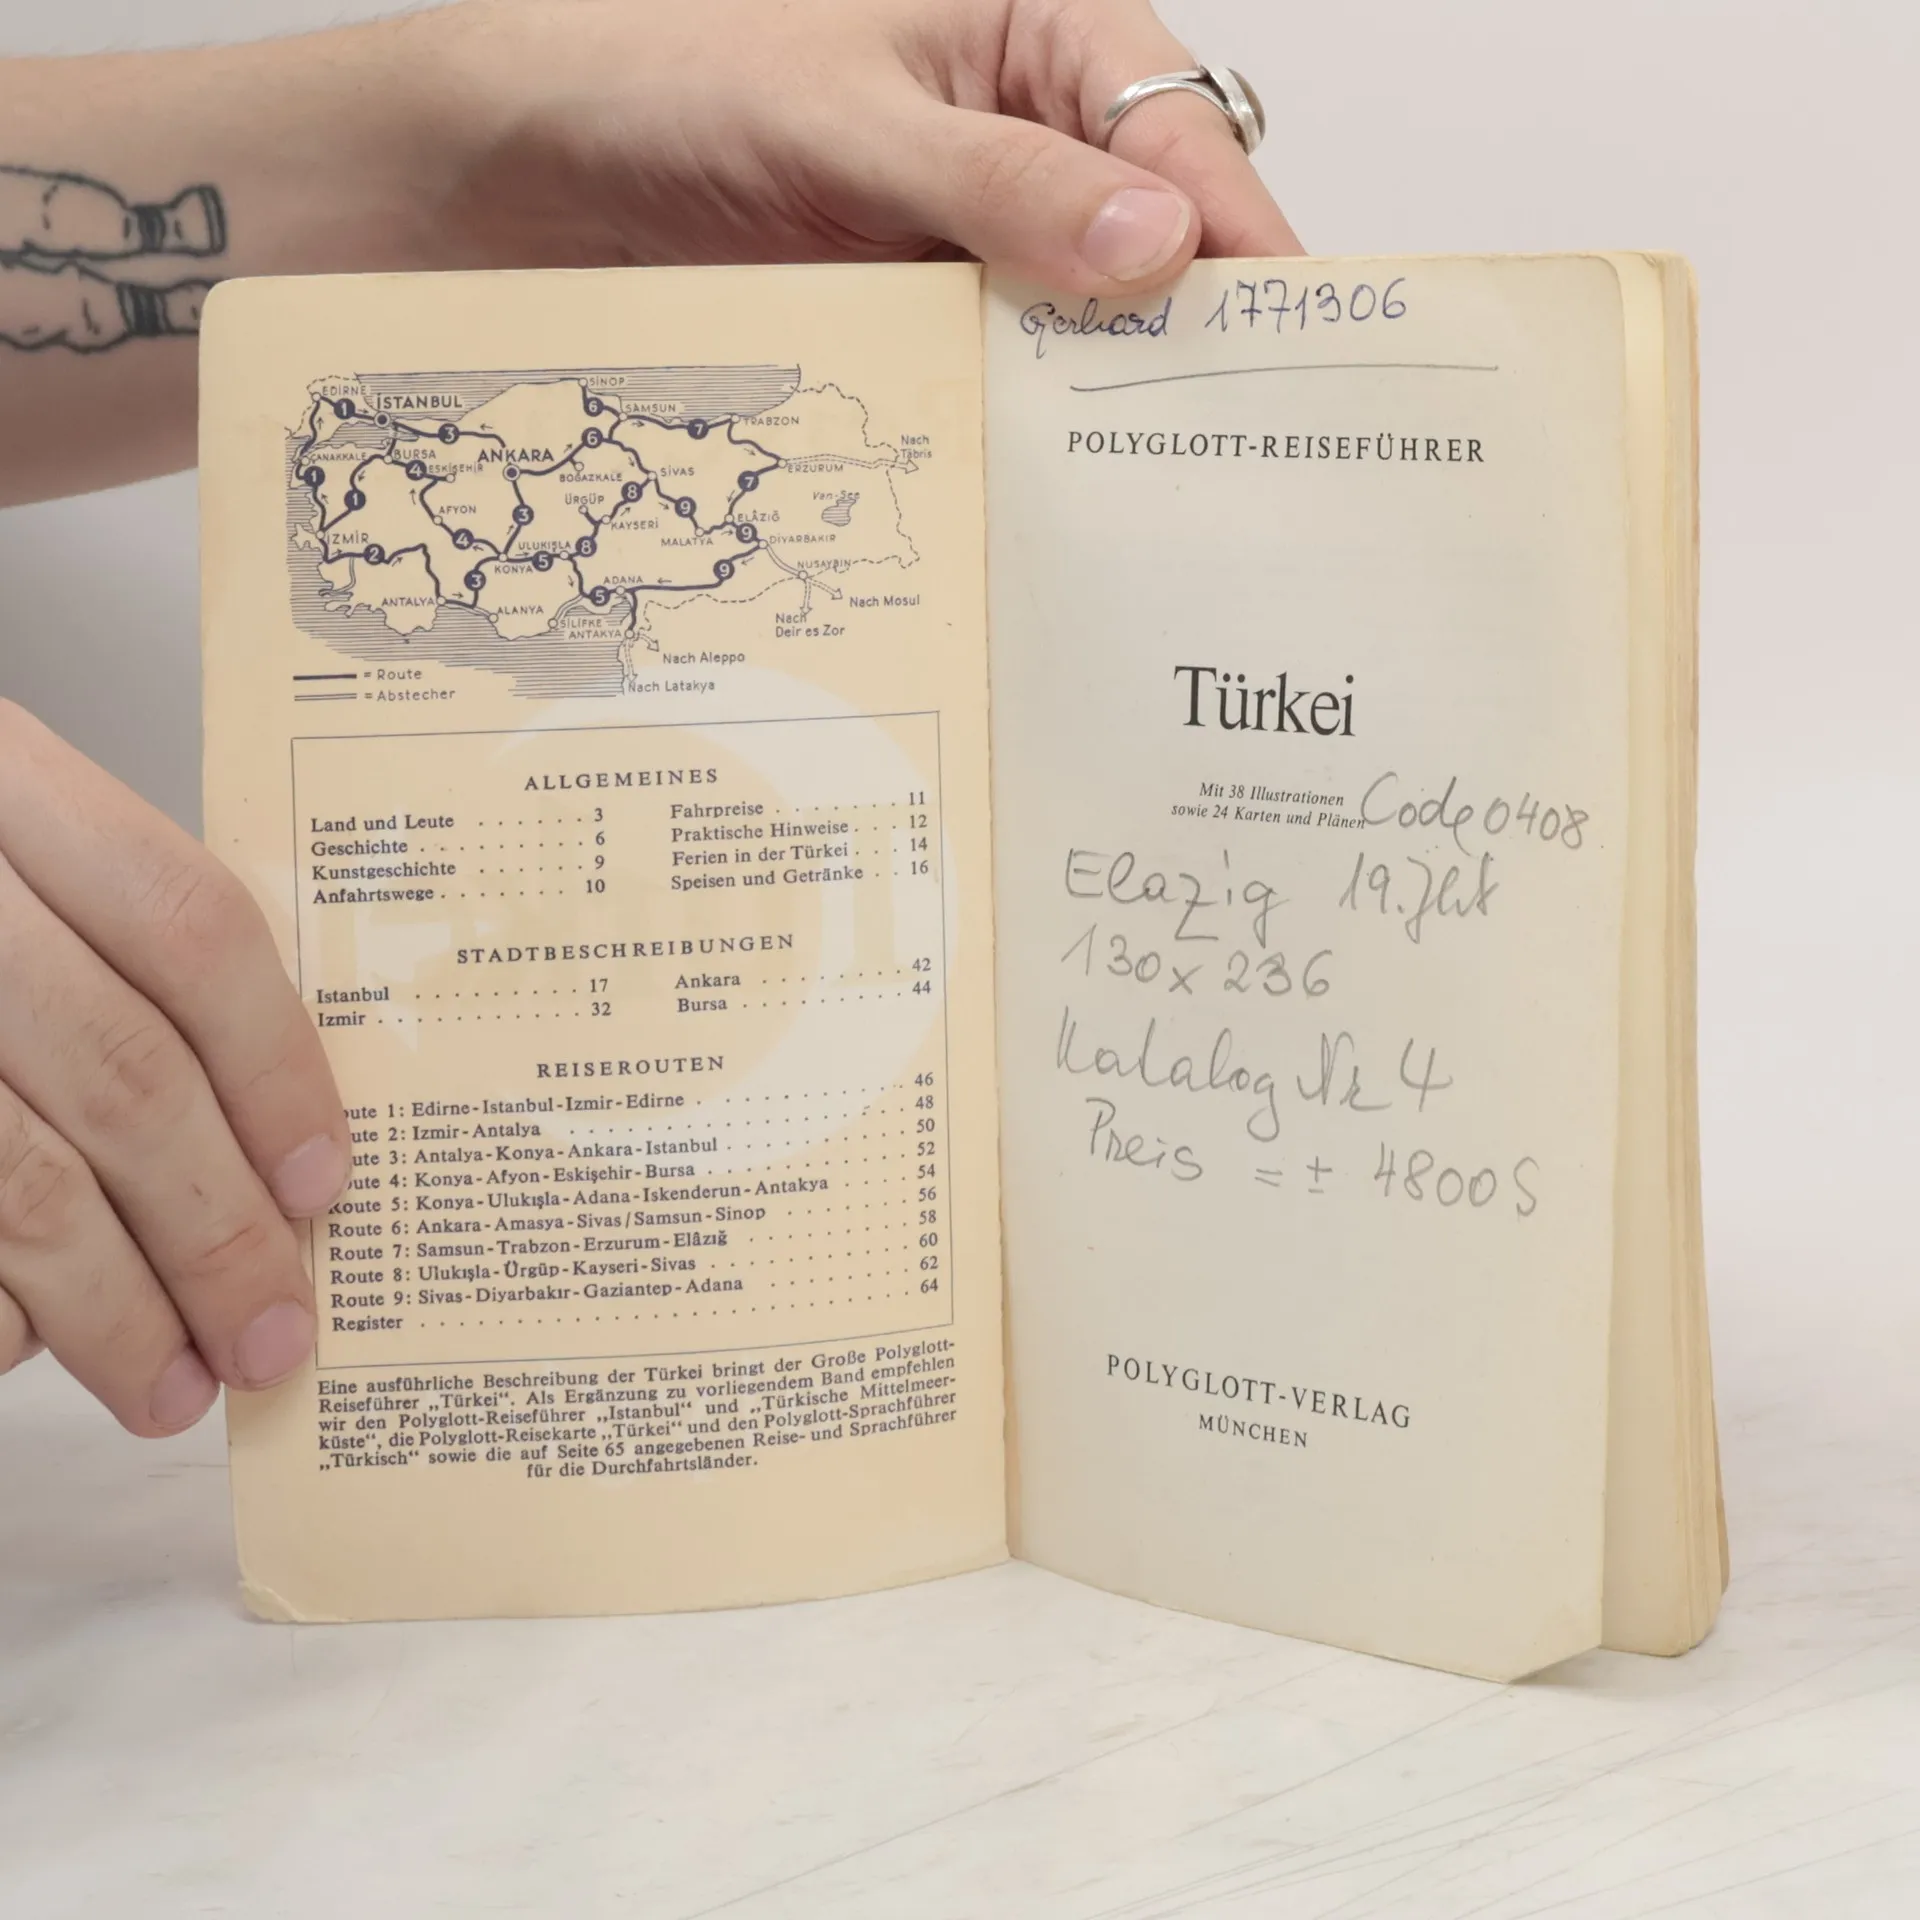 EDİRNE
İSTANBUL
SİNOP
SAMSUN
TRABZON
Nach
Täbris
ÇANAKKALE
BURSA
ESKİŞEHİR
ANKARA
BOĞAZKALE
SİVAS
ERZURUM
ÜRGÜP
Van-See
AFYON
KAYSERİ
ELÂZIĞ
İZMİR
ULUKIŞLA
MALATYA
DİYARBAKIR
KONYA
ADANA
NUSAYBİN
ANTALYA
ALANYA
SİLİFKE
ANTAKYA
Nach Mosul
Nach
Deir es Zor
Nach Aleppo
Nach Latakya
= Route
= Abstecher
ALLGEMEINES
Land und Leute . . . . . . 3
Geschichte . . . . . . . . . 6
Kunstgeschichte . . . . . . 9
Anfahrtswege . . . . . . . 10
Fahrpreise . . . . . . . 11
Praktische Hinweise . . . 12
Ferien in der Türkei . . . 14
Speisen und Getränke . . 16
STADTBESCHREIBUNGEN
Istanbul . . . . . . . . . . 17
Izmir . . . . . . . . . . . . 32
Ankara . . . . . . . . 42
Bursa . . . . . . . . . 44
REISEROUTEN
oute 1: Edirne-Istanbul-Izmir-Edirne . . . . . . . . . . 46
ute 2: Izmir-Antalya . . . . . . . . . . . . . . . . 48
ute 3: Antalya-Konya-Ankara-Istanbul . . . . . . . . . 50
oute 4: Konya-Afyon-Eskişehir-Bursa . . . . . . . . . . 52
Route 5: Konya-Ulukışla-Adana-Iskenderun-Antakya . . . . 54
Route 6: Ankara-Amasya-Sivas/Samsun-Sinop . . . . . . 56
Route 7: Samsun-Trabzon-Erzurum-Elâzığ . . . . . . . . 58
Route 8: Ulukışla-Ürgüp-Kayseri-Sivas . . . . . . . . . 60
Route 9: Sivas-Diyarbakır-Gaziantep-Adana . . . . . . . 62
Register . . . . . . . . . . . . . . . . . . . . . . . 64
Eine ausführliche Beschreibung der Türkei bringt der Große Polyglott-
Reiseführer „Türkei“. Als Ergänzung zu vorliegendem Band empfehlen
wir den Polyglott-Reiseführer „Istanbul“ und „Türkische Mittelmeer-
küste“, die Polyglott-Reisekarte „Türkei“ und den Polyglott-Sprachführer
„Türkisch“ sowie die auf Seite 65 angegebenen Reise- und Sprachführer
für die Durchfahrtsländer.
Gerhard 1771306
POLYGLOTT-REISEFÜHRER
Türkei
Mit 38 Illustrationen
sowie 24 Karten und Plänen
Code 0408
Elazig 19. Jht
130x236
Katalog Nr 4
Preis = ± 4800 S
POLYGLOTT-VERLAG
MÜNCHEN